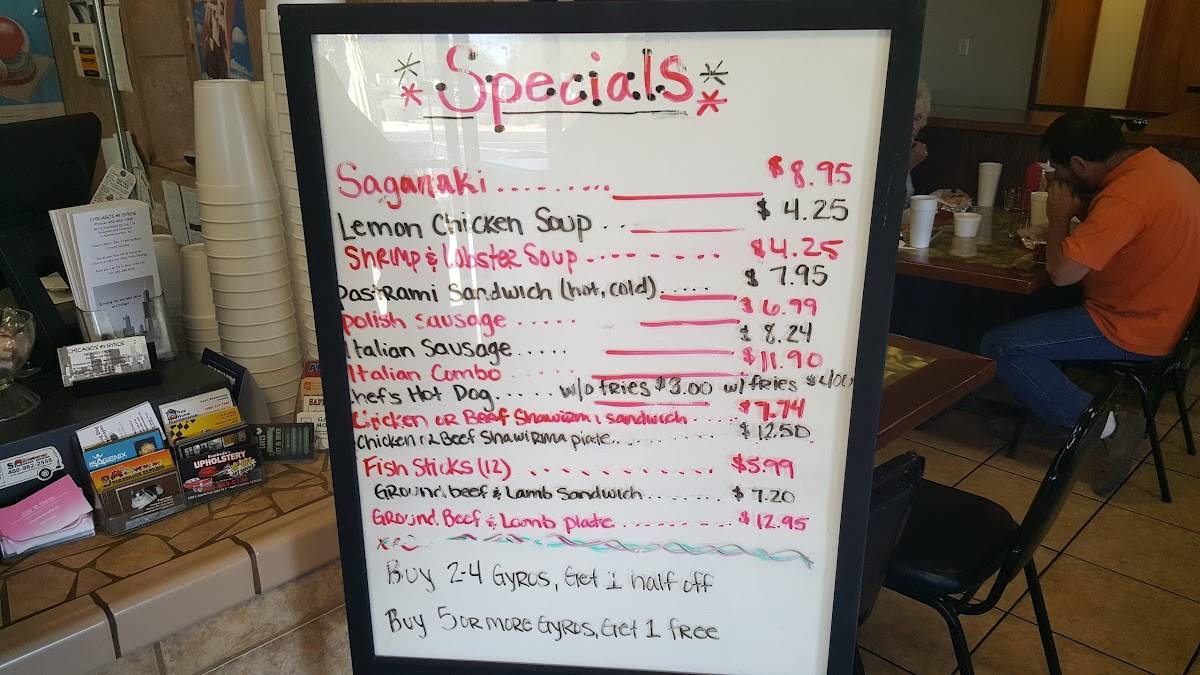 * Specials *
Saganaki ......... $8.95
Lemon Chicken Soup .. $4.25
Shrimp & Lobster Soup........ $4.25
Pastrami Sandwich (hot, cold)..... $7.95
polish sausage ..... $6.99
Italian Sausage..... $8.24
Italian Combo $11.90
hef's Hot Dog..... w/o fries $3.00 w/ fries $4.00
Chicken or Beef Shawirma sandwich..... $7.74
Chicken or Beef Shawirma plate........ $12.50
Fish Sticks (12) .......... $5.99
Ground beef & Lamb Sandwich....... $7.20
Ground Beef & Lamb plate........ $12.95
Buy 2-4 Gyros, Get 1 half off
Buy 5 or more Gyros, Get 1 free
CHICAGO'S #1 GYROS
CHICAGO'S #1 GYROS
ISAGENIX
UPHOLSTERY
480-982-2555